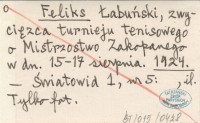 o Feliks Łabuński, zwy-
cięzca turnieju tenisowego
o Mistrzostwo Zakopanego
w dn. 15-17 sierpnia. 1924.
— Światowid 1, nr 5: , il.
Tylko fot.